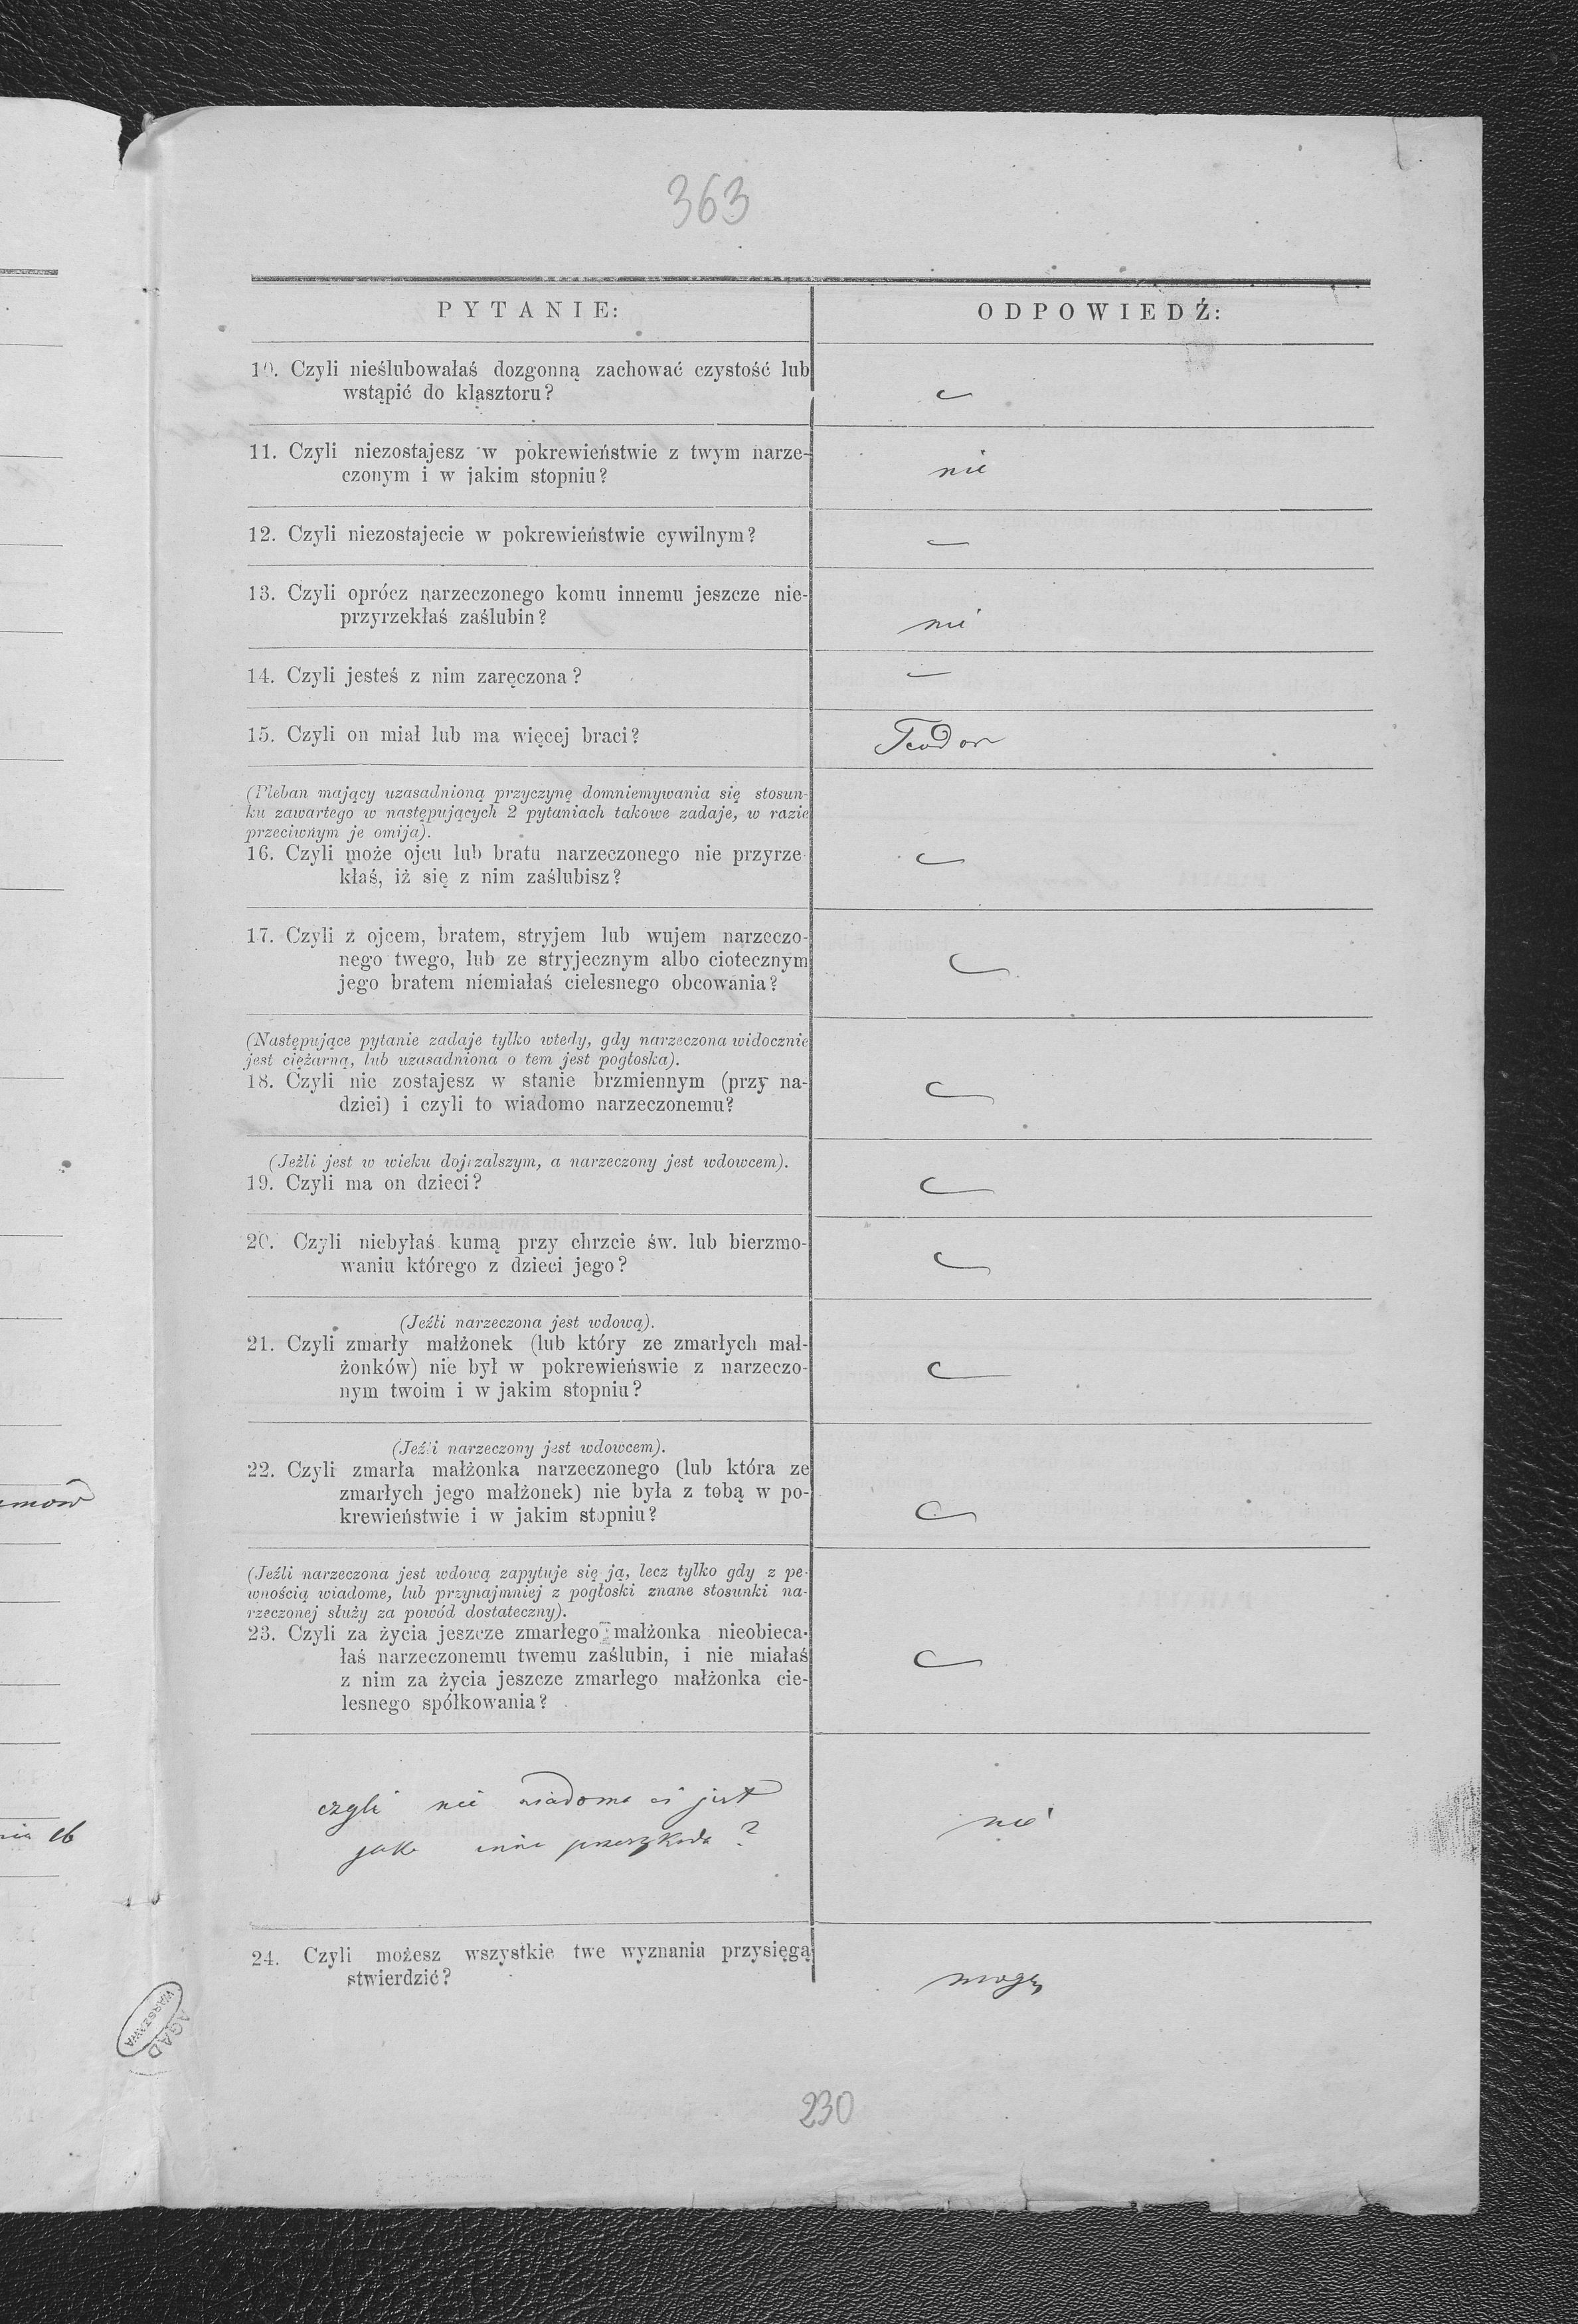 363
PYTANIE:
ODPOWIEDŹ:
10. Czyli nieślubowałaś dozgonną zachować czystość lub
wstąpić do klasztoru?
11. Czyli niezostajesz w pokrewieństwie z twym narze-
czonym i w jakim stopniu?
nie
12. Czyli niezostajecie w pokrewieństwie cywilnym?
—
13. Czyli oprócz narzeczonego komu innemu jeszcze nie-
przyrzekłaś zaślubin?
nie
14. Czyli jesteś z nim zaręczona?
—
15. Czyli on miał lub ma więcej braci?
Teodor
(Pleban mający uzasadnioną przyczynę domniemywania się stosun-
ku zawartego w następujących 2 pytaniach takowe zadaje, w razie
przeciwnym je omija).
16. Czyli może ojcu lub bratu narzeczonego nie przyrze
kłaś, iż się z nim zaślubisz?
17. Czyli z ojcem, bratem, stryjem lub wujem narzeczo-
nego twego, lub ze stryjecznym albo ciotecznym
jego bratem niemiałaś cielesnego obcowania?
(Następujące pytanie zadaje tylko wtedy, gdy narzeczona widocznie
jest ciężarną, lub uzasadniona o tem jest pogłoska).
18. Czyli nie zostajesz w stanie brzmiennym (przy na-
dziei) i czyli to wiadomo narzeczonemu?
(Jeżli jest w wieku dojrzalszym, a narzeczony jest wdowcem).
19. Czyli ma on dzieci?
20. Czyli niebyłaś kumą przy chrzcie św. lub bierzmo-
waniu którego z dzieci jego?
(Jeźli narzeczona jest wdową).
21. Czyli zmarły małżonek (lub który ze zmarłych mał-
żonków) nie był w pokrewieńswie z narzeczo-
nym twoim i w jakim stopniu?
(Jeźli narzeczony jest wdowcem).
22. Czyli zmarła małżonka narzeczonego (lub która ze
zmarłych jego małżonek) nie była z tobą w po-
krewieństwie i w jakim stopniu?
(Jeźli narzeczona jest wdową zapytuje się ją, lecz tylko gdy z pe-
wnością wiadome, lub przynajmniej z pogłoski znane stosunki na-
rzeczonej służy za powód dostateczny).
23. Czyli za życia jeszcze zmarłego małżonka nieobieca-
łaś narzeczonemu twemu zaślubin, i nie miałaś
z nim za życia jeszcze zmarłego małżonka cie-
lesnego spółkowania?
czyli nie wiadomo ci jest
jaka inna przeszkoda?
nie
24. Czyli możesz wszystkie twe wyznania przysięgą
stwierdzić?
mogę
AGAD
WARSZAWA
230